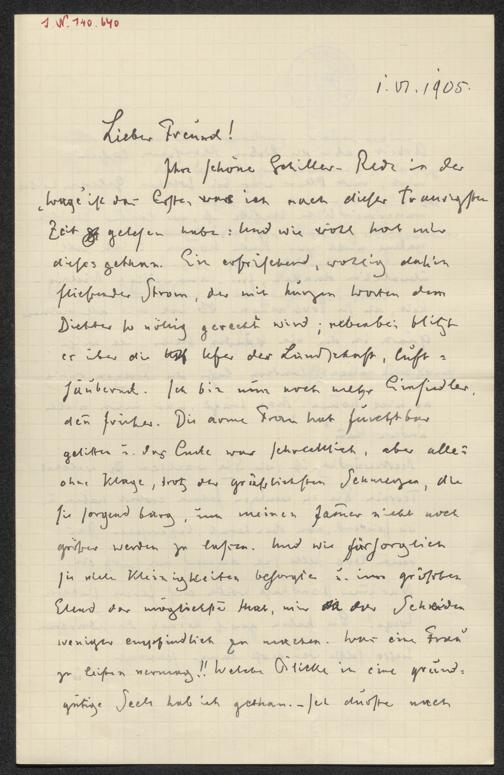 I.N. 140.640
1. VI. 1905.
Lieber Freund!
Ihre schöne Schiller-Rede in der
„Wage" ist das Erste, was ich nach dieser traurigsten
Zeit gelesen habe: Und wie wohl hat mir
dieses gethan. Ein erfrischend, wohlig dahin
fließender Strom, der mit kurzen Worten dem
Dichter so völlig gerecht wird; nebenbei blitzt
er über die Ufer der Landschaft, luft-
säubernd. Ich bin nun noch mehr Einsiedler,
den früher. Die arme Frau hat furchtbar
gelitten u. das Ende war schrecklich, aber alles
ohne Klage, trotz der gräßlichsten Schmerzen, die
sie sorgend barg, um meinen Jammer nicht noch
größer werden zu lassen. Und wie fürsorglich
sie viele Kleinigkeiten besorgte u. im größten
Elend das möglichste that, mir das Scheiden
weniger empfindlich zu machen. Was eine Frau
zu leisten vermag!! Welche Blicke in eine grund-
gütige Seele hab ich gethan. – Ich dürfte nach